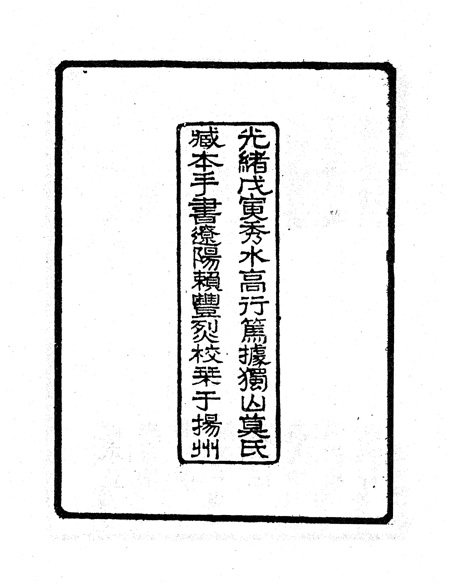 光緒戊寅秀水高行篤據獨山莫氏
臧本手書遼陽賴豐烈校栞于揚州